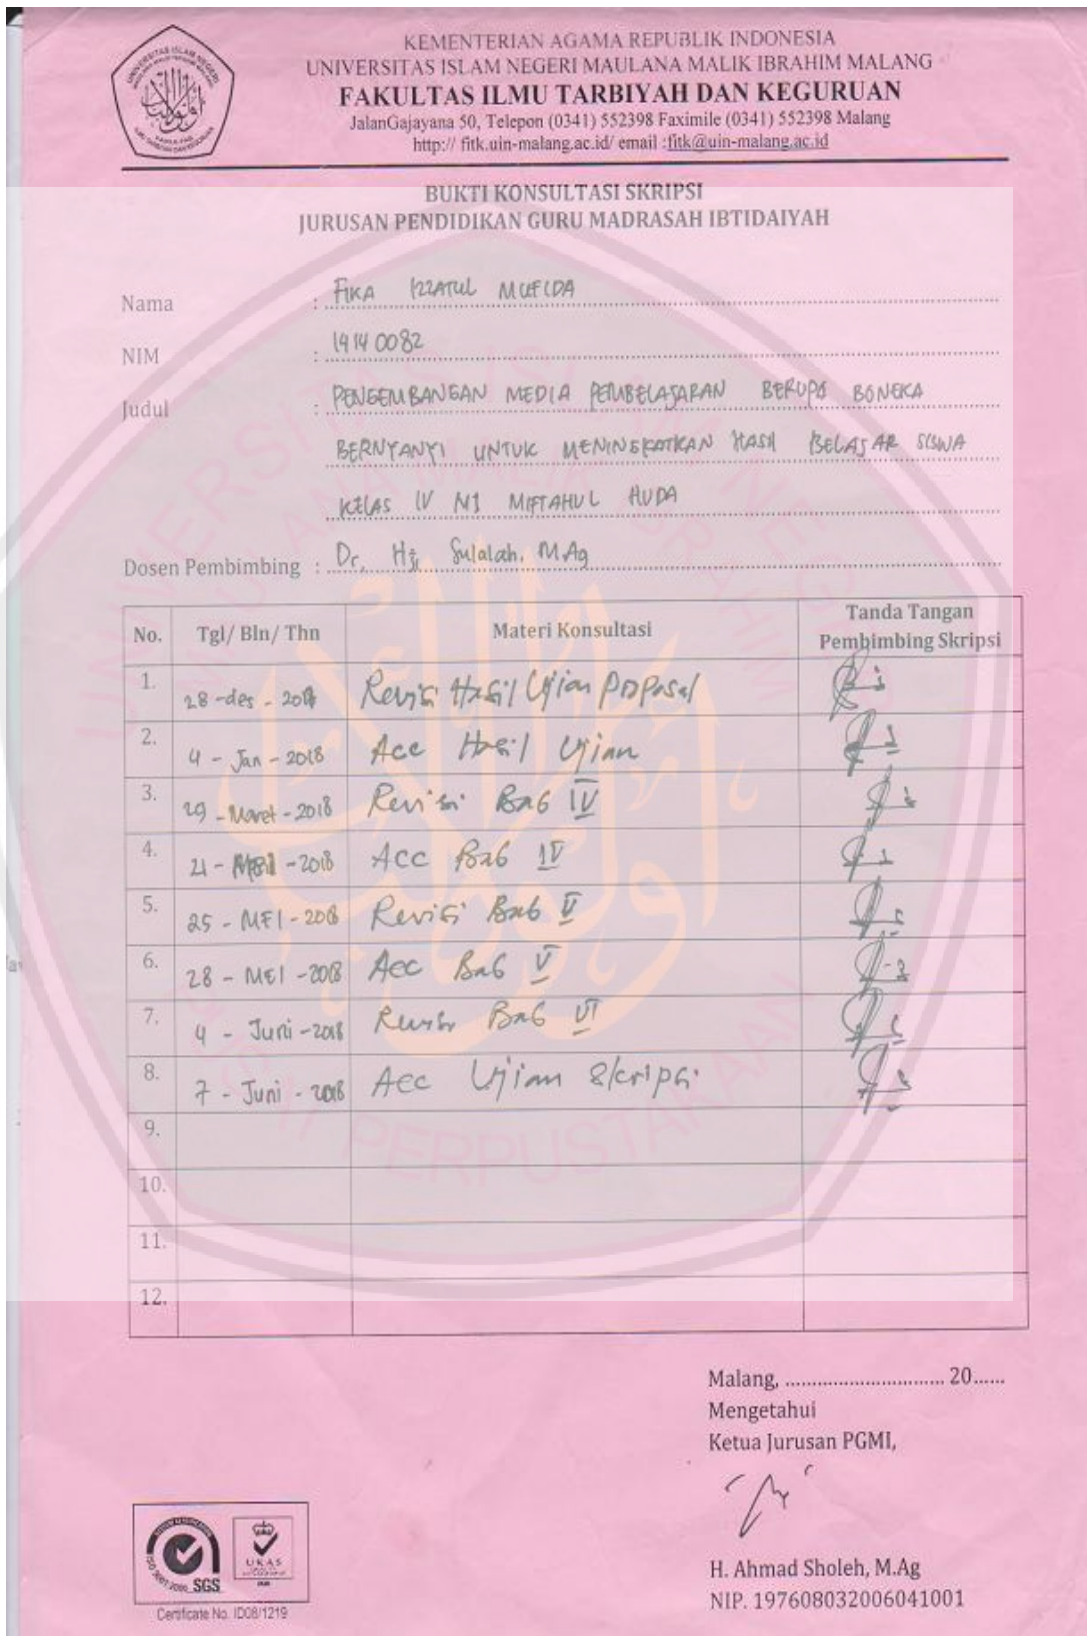 KEMENTERIAN AGAMA REPUBLIK INDONESIA
UNIVERSITAS ISLAM NEGERI MAULANA MALIK IBRAHIM MALANG
FAKULTAS ILMU TARBIYAH DAN KEGURUAN
JalanGajayana 50, Telepon (0341) 552398 Faximile (0341) 552398 Malang
http:// fitk.uin-malang.ac.id/ email :fitk@uin-malang.ac.id
BUKTI KONSULTASI SKRIPSI
JURUSAN PENDIDIKAN GURU MADRASAH IBTIDAIYAH
Nama : FIKA IZZATUL MUFIDA
NIM : 14140082
Judul : PENGEMBANGAN MEDIA PEMBELAJARAN BERUPA BONEKA
BERNYANYI UNTUK MENINGKATKAN HASIL BELAJAR SISWA
KELAS IV MI MIFTAHUL HUDA
Dosen Pembimbing : Dr. Hj. Sulalah, M.Ag
No. Tgl/ Bln/ Thn Materi Konsultasi Tanda Tangan Pembimbing Skripsi
1. 28 - des - 2017 Revisi Hasil Ujian Proposal
2. 4 - Jan - 2018 Acc Hasil Ujian
3. 29 - Maret - 2018 Revisi Bab IV
4. 21 - April - 2018 Acc Bab IV
5. 25 - MEI - 2018 Revisi Bab V
6. 28 - MEI - 2018 Acc Bab V
7. 4 - Juni - 2018 Revisi Bab VI
8. 7 - Juni - 2018 Acc Ujian Skripsi
9.
10.
11.
12.
Malang, ............................. 20......
Mengetahui
Ketua Jurusan PGMI,
H. Ahmad Sholeh, M.Ag
NIP. 197608032006041001
SGS
UKAS
Certificate No. ID08/1219